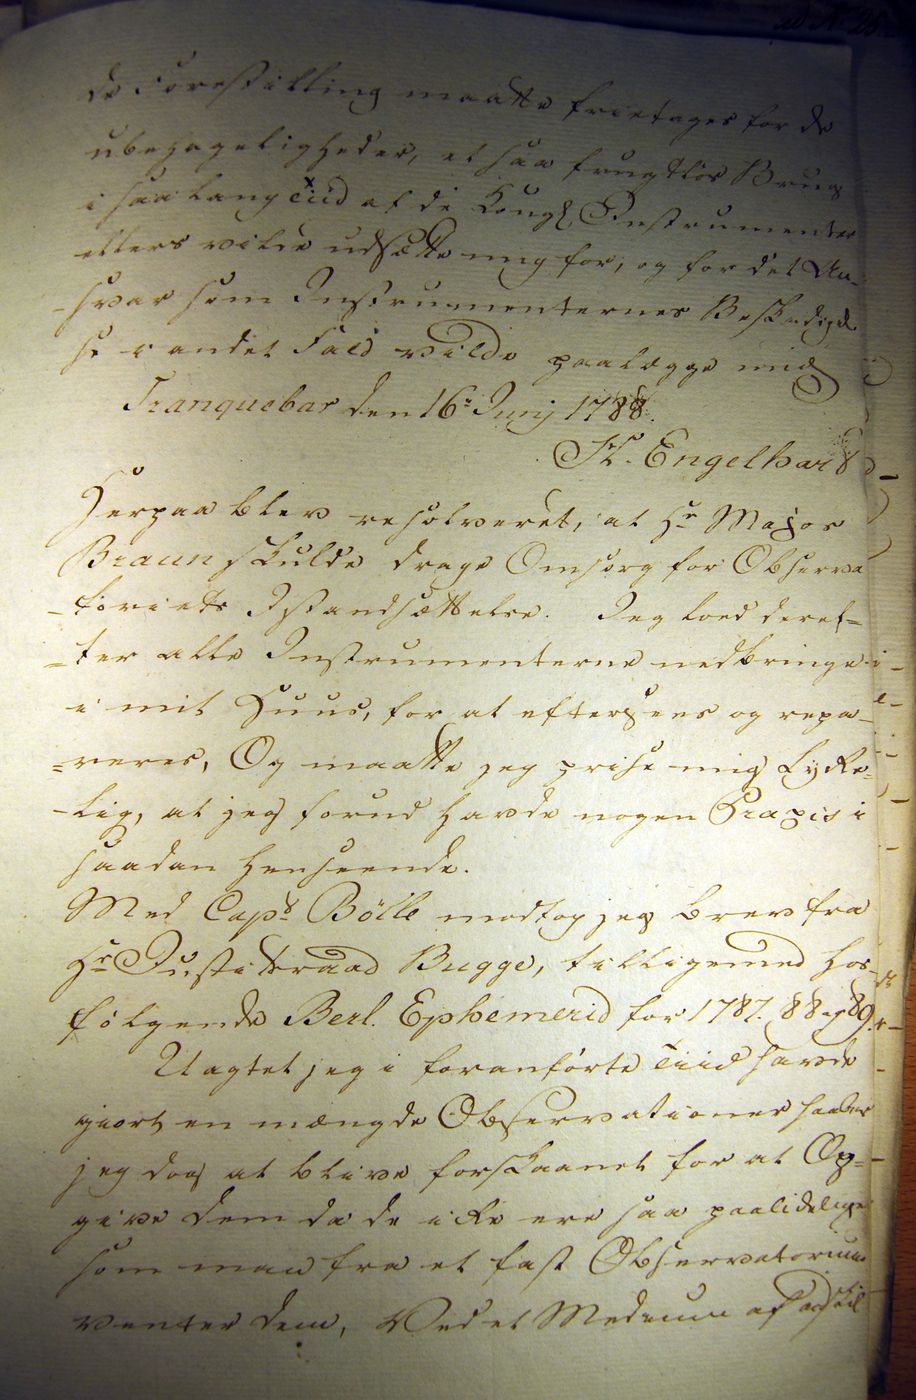 ad N 25
de Forestilling maatte frietages for de
ubehageligheder, et saa frugtløs Brug
i saa lang Tiid af de Kongl Instrumenter
ellers vilde udsætte mig for, og for det An-
-svar som Instrumenternes Beskadigel
se i andet Fald vilde paalægge mig
Tranquebar den 16 Junij 1788.
Engelhart
Herpaa blev resolveret, at Hr Major
Braun skulde drage Omsorg for Observa
-toriets Istandsættelse. Jeg loed deref=
=ter alle Instrumenterne nedbringe
i mit Huus, for at eftersees og repa-
=reres, Og maatte jeg prise mig Lykke=
-lig, at jeg forud havde nogen Praxis i
saadan Henseende.
Med Capt Bölle modtog jeg brev fra
Hr Justitsraad Bugge, tilligemed hos-
følgende Berl. Ephemerid for 1787. 88 og 89.
Uagtet jeg i foranførte Tiid havde
giort en mængde Observationer haaber
jeg dog at blive forskaanet for at Op=
give dem da de ikke ere saa paalidelige
som man fra et fast Observatorium
venter dem, Ved et Medium af